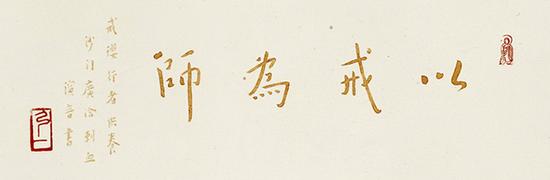 以戒為師
戒瓔行者供養
沙門廣洽刺血
演音書
弘一